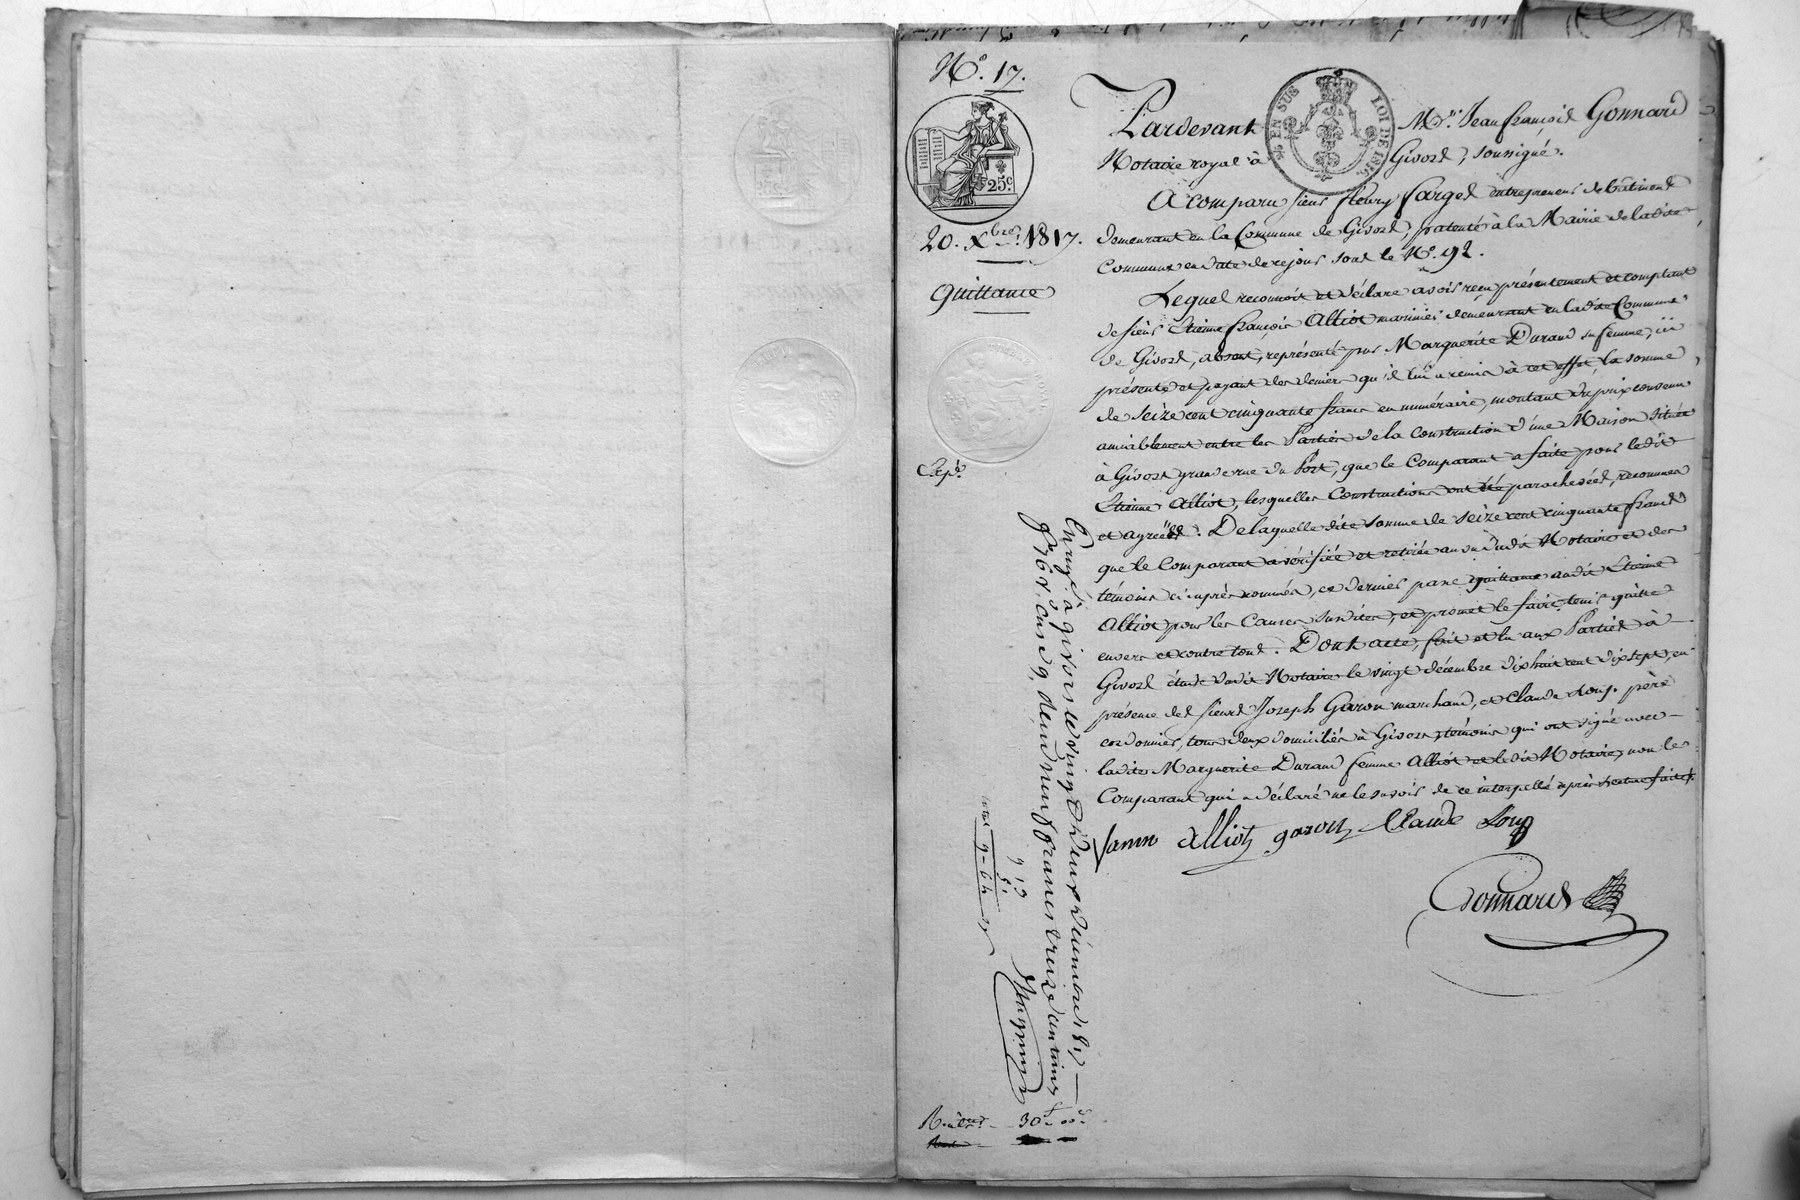 N.° 17.
25.c
EN SUS
LOI DE 1816
20. Xbre. 1817.
Quittance
Expé.
Pardevant Me. Jean françois Gonnard
Notaire royal à Givors, soussigné.
A comparu sieur fleury farges entrepreneur de bâtiments
demeurant en la Commune de Givors, patenté à la Mairie de ladite
Commune en date de ce jour sous le N.° 92.
Lequel reconnoit et déclare avoir reçu présentement et comptant
de sieur Etienne françois Alliot marinier demeurant en ladite Commune
de Givors, absent, représenté par Marguerite Durand sa femme, ici
présente et payant des deniers qu'il lui a remis à cet effet, la somme
de seize cent cinquante francs en numéraire, montant du prix convenu
amiablement entre les Parties de la construction d'une Maison située
à Givors grande rue du Port, que le Comparant a faite pour ledit
Etienne Alliot, lesquelles Constructions ont été parachevées, reconnues
et agréées. De laquelle dite somme de seize cent cinquante francs
que le Comparant a vérifiée et retirée au vu dudit Notaire et des
témoins ci après nommés, ce dernier passe quittance audit Etienne
Alliot pour les Causes susdites, et promet le faire tenir quitte
envers et contre tous. Dont acte, fait et lu aux Parties à
Givors étude dudit Notaire le vingt décembre dix huit cent dix sept, en
présence des sieurs Joseph Garon marchand, et Claude Loup père
cordonnier, tous deux domiciliés à Givors, témoins qui ont signé avec
ladite Marguerite Durand femme Alliot et ledit Notaire, non le
Comparant qui a déclaré ne le savoir de ce interpellé après lecture faite.
famm alliot garon Claude Loup
Gonnard
Enregé à givors le vingt deux décembre 1817
f° 76 v. case 9, reçu neuf francs treize centimes
R. 30f 00c